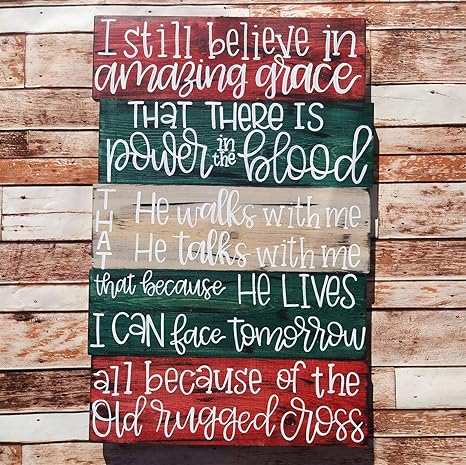 I still believe in
amazing grace
THAT THERE IS
power in the blood
THAT He walks with me
He talks with me
that because HE LIVES
I CAN face tomorrow
all because of the
Old rugged cross